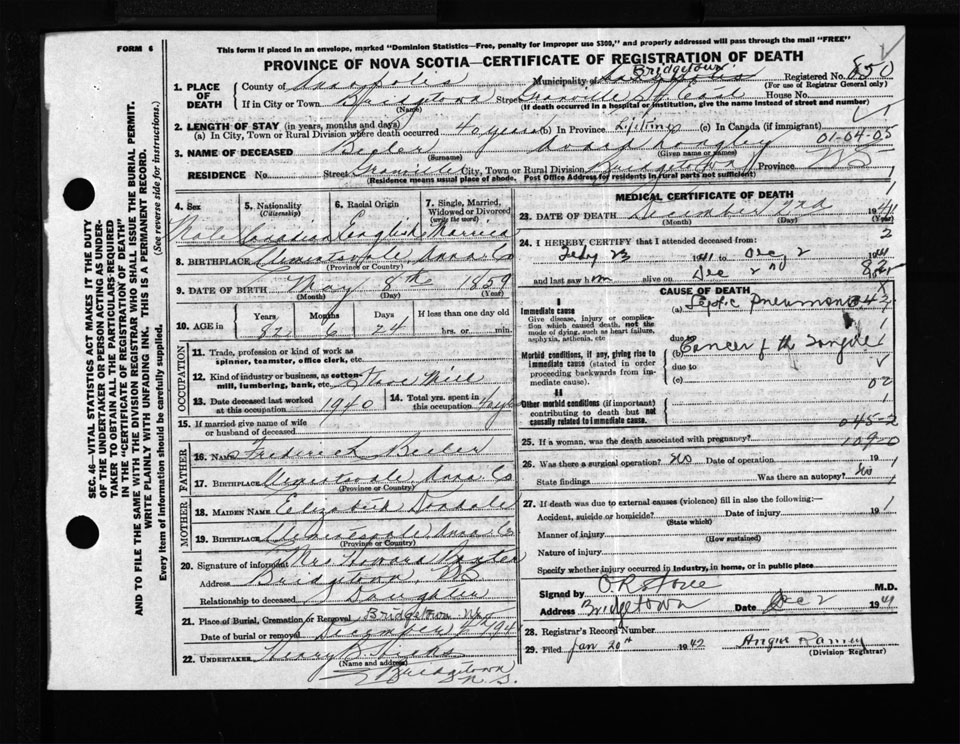 FORM 6
This form if placed in an envelope, marked "Dominion Statistics—Free, penalty for improper use $300," and properly addressed will pass through the mail "FREE"
PROVINCE OF NOVA SCOTIA—CERTIFICATE OF REGISTRATION OF DEATH
1. PLACE OF DEATH County of Annapolis Municipality of Bridgetown Registered No. 850
(For use of Registrar General only)
If in City or Town Bridgetown Street Granville St East House No.
(Name) (If death occurred in a hospital or institution, give the name instead of street and number)
2. LENGTH OF STAY (in years, months and days)
(a) In City, Town or Rural Division where death occurred 40 years (b) In Province Lifetime (c) In Canada (if immigrant)
01-04-05
3. NAME OF DECEASED Beeler
(Surname) (Given name or names)
RESIDENCE No. Street Granville City, Town or Rural Division Bridgetown Province NS
(Residence means usual place of abode. Post Office Address for residents in rural parts not sufficient)
4. Sex 5. Nationality (Citizenship) 6. Racial Origin 7. Single, Married, Widowed or Divorced (write the word)
Male Canadian English Married
8. BIRTHPLACE Clementsvale Anna. Co
(Province or Country)
9. DATE OF BIRTH May 8th 1859
(Month) (Day) (Year)
10. AGE in Years Months Days If less than one day old
82 6 24 hrs. or min.
OCCUPATION
11. Trade, profession or kind of work as spinner, teamster, office clerk, etc.
12. Kind of industry or business, as cotton-mill, lumbering, bank, etc. Mill
13. Date deceased last worked at this occupation 1940 14. Total yrs. spent in this occupation
15. If married give name of wife or husband of deceased
FATHER
16. NAME Frederick Beeler
17. BIRTHPLACE Clementsvale Anna. Co
(Province or Country)
MOTHER
18. MAIDEN NAME Elizabeth
19. BIRTHPLACE Clementsvale Anna Co
(Province or Country)
20. Signature of informant Mrs Howard
Address Bridgetown, NS
Relationship to deceased Daughter
21. Place of Burial, Cremation or Removal Bridgetown
Date of burial or removal December 4th 1941
22. UNDERTAKER Henry B. Hicks
(Name and address)
Bridgetown
N.S.
MEDICAL CERTIFICATE OF DEATH
23. DATE OF DEATH December 2nd 1941
(Month) (Day) (Year)
24. I HEREBY CERTIFY that I attended deceased from:
1941 to Dec 2 1941
and last saw him alive on Dec 2nd
CAUSE OF DEATH
I
Immediate cause
Give disease, injury or complication which caused death, not the mode of dying, such as heart failure, asphyxia, asthenia, etc
(a) Septic Pneumonia
due to
Morbid conditions, if any, giving rise to immediate cause (stated in order proceeding backwards from immediate cause).
(b) Cancer of the Tongue
due to
(c)
02
II
Other morbid conditions (if important) contributing to death but not causally related to immediate cause.
045-2
25. If a woman, was the death associated with pregnancy? 109-0
26. Was there a surgical operation? No Date of operation
State findings Was there an autopsy? No
27. If death was due to external causes (violence) fill in also the following:—
Accident, suicide or homicide? Date of injury 19
(State which)
Manner of injury
(How sustained)
Nature of injury
Specify whether injury occurred in industry, in home, or in public place
Signed by M.D.
Address Bridgetown Date Dec 2 1941
28. Registrar's Record Number
29. Filed Jan 20th 1942 Angus Ramey
(Division Registrar)
SEC. 46—VITAL STATISTICS ACT MAKES IT THE DUTY
OF THE UNDERTAKER OR PERSON ACTING AS UNDER-
TAKER TO OBTAIN ALL THE PARTICULARS REQUIRED
IN THE "CERTIFICATE OF REGISTRATION OF DEATH"
AND TO FILE THE SAME WITH THE DIVISION REGISTRAR WHO SHALL ISSUE THE BURIAL PERMIT.
WRITE PLAINLY WITH UNFADING INK. THIS IS A PERMANENT RECORD.
Every item of information should be carefully supplied. (See reverse side for instructions.)